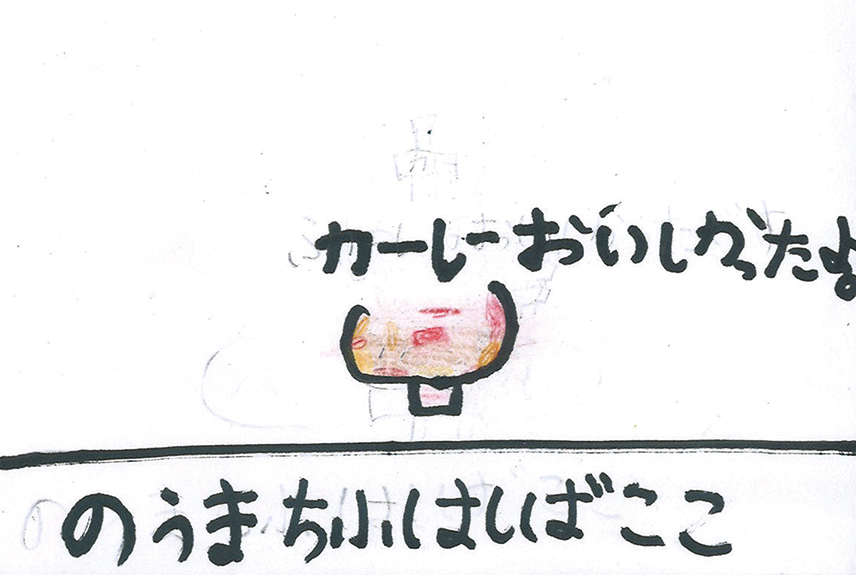 カーレーおいしかったよ
のうまちふはしばここ